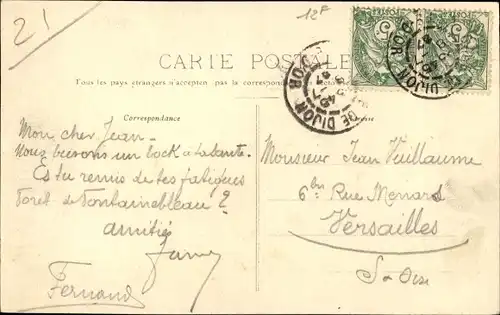 21
12F
CARTE POSTALE
Tous les pays étrangers n'acceptent pas la correspondance
Correspondance
Mon cher Jean -
Nous buvons un bock à ta santé.
Es tu remis de tes fatigues
Foret de Fontainebleau ?
amitiés
Fernand
Monsieur Jean Vuillaume
6 bis Rue Menard
Versailles
S-&-Oise
DE DIJON
DIJON